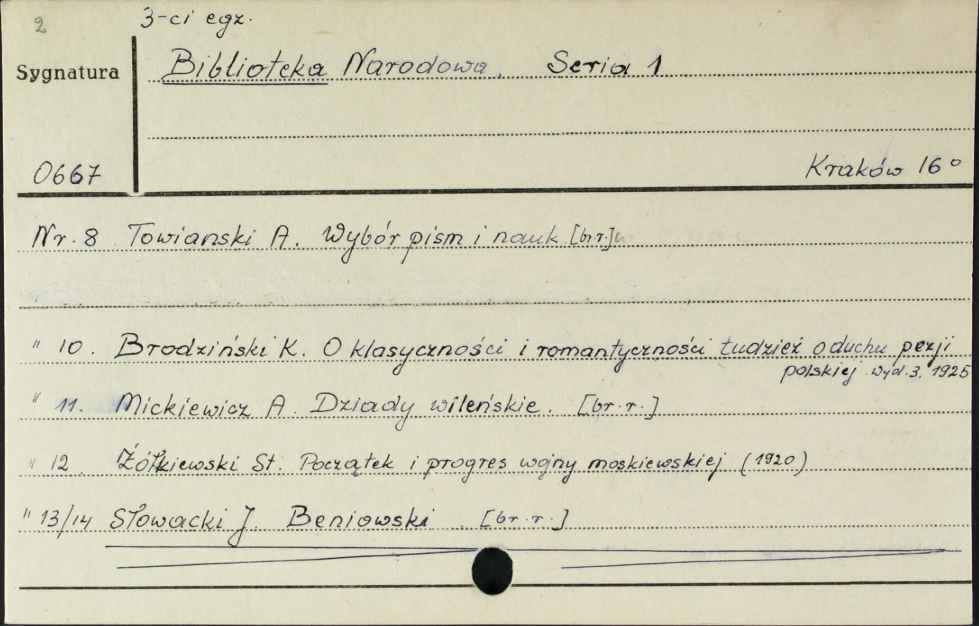 2
3-ci egz.
Sygnatura
Biblioteka Narodowa. Seria 1
0667
Kraków 16°
Nr. 8 Towianski A. Wybór pism i nauk [br.r.]
" 10. Brodziński K. O klasyczności i romantyczności tudzież o duchu pezji
polskiej wyd. 3. 1925
" 11. Mickiewicz A. Dziady wileńskie. [br.r.]
" 12 Żółkiewski St. Początek i progres wojny moskiewskiej (1920)
" 13/14 Słowacki J. Beniowski. [br.r.]